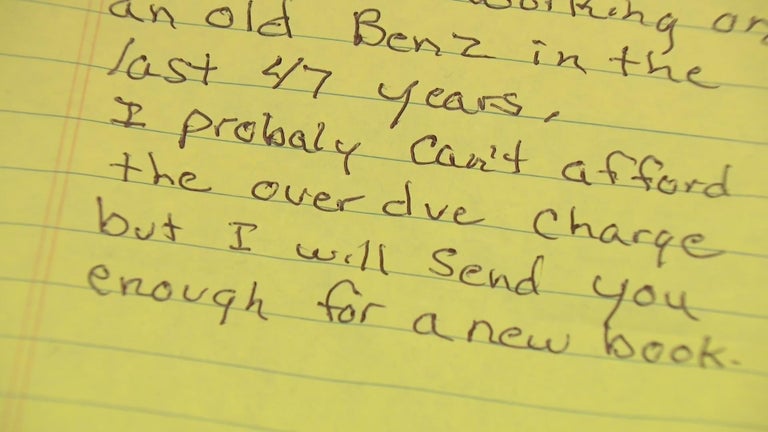 working on
an old Benz in the
last 47 years,
I probaly can't afford
the over due charge
but I will send you
enough for a new book.